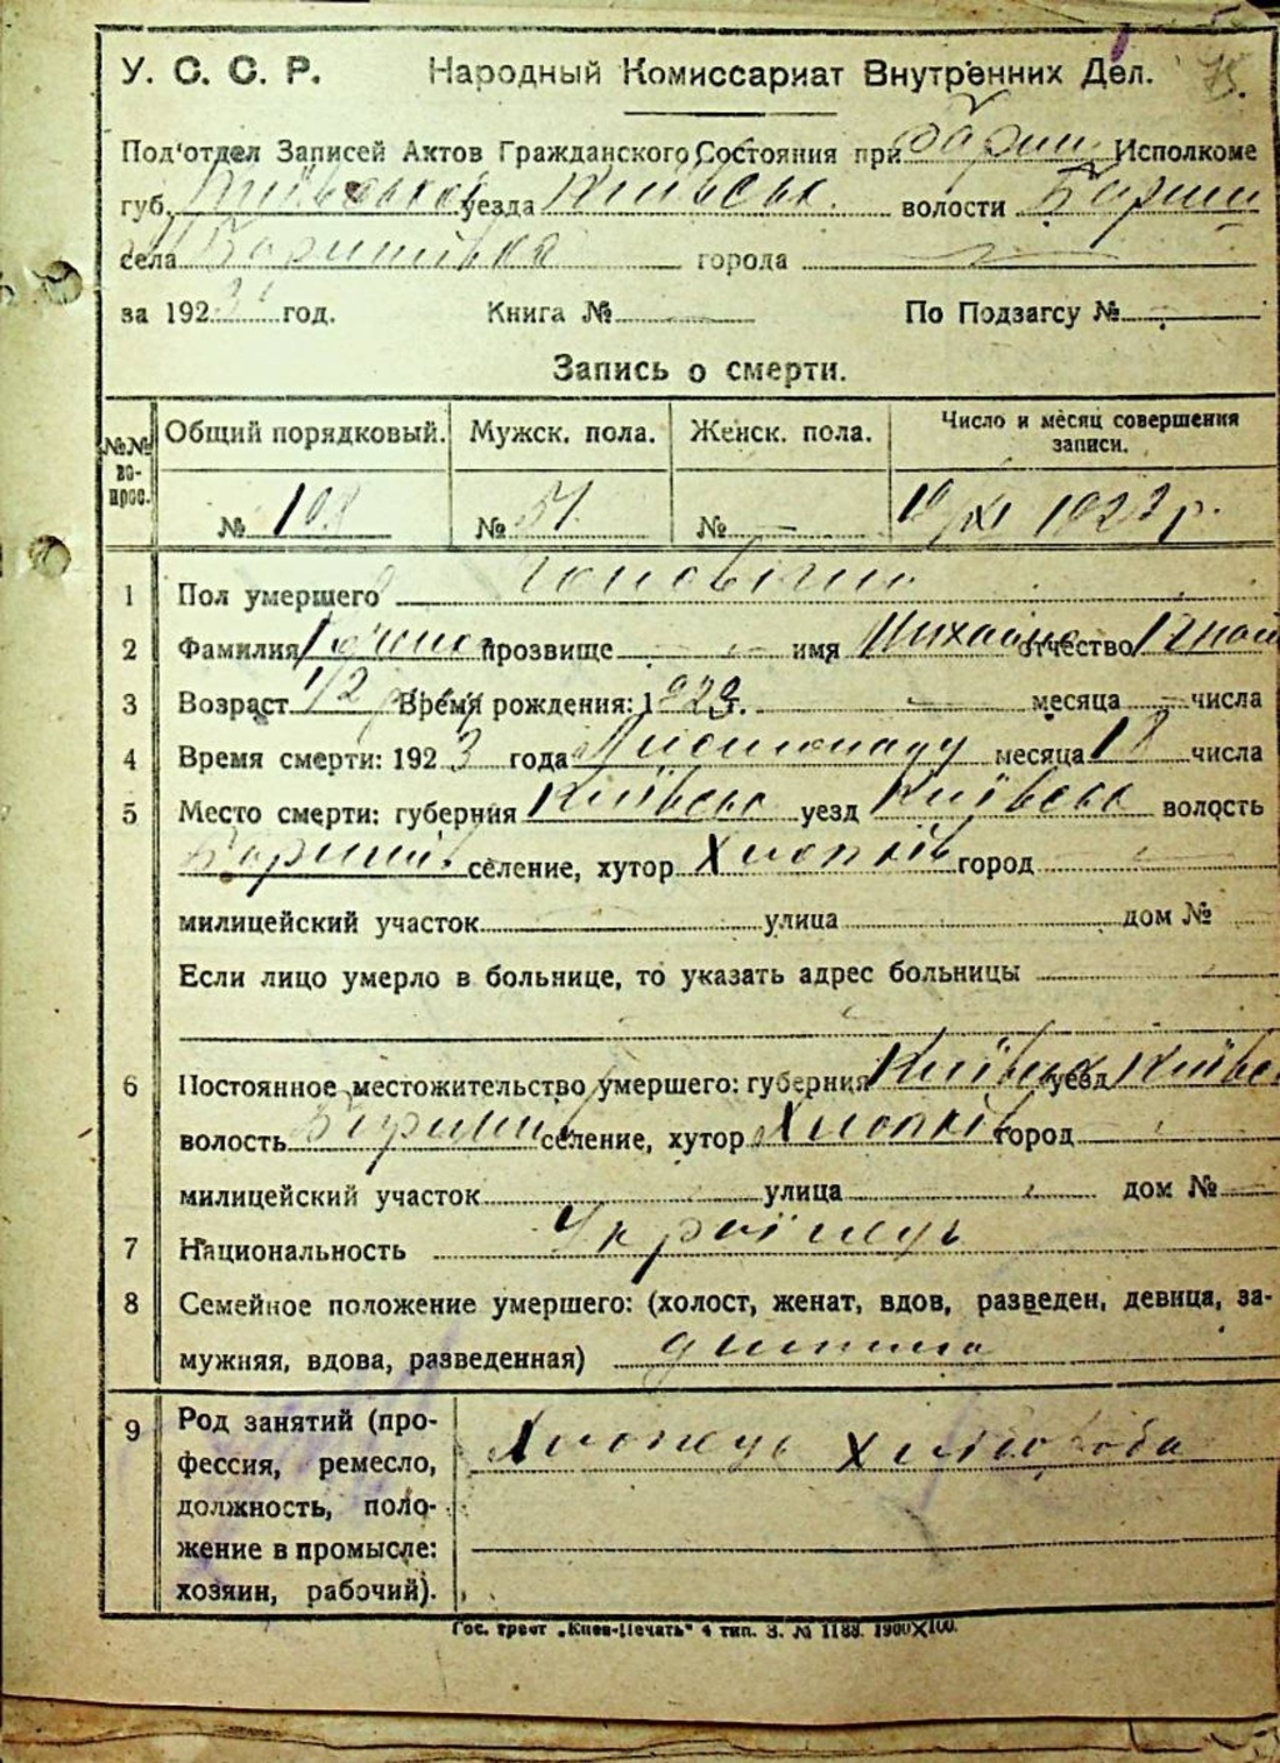 У. С. С. Р. Народный Комиссариат Внутренних Дел. 75.
Под'отдел Записей Актов Гражданского Состояния при Бариш Исполкоме
губ. Київської уезда Київськ. волости Бариш
села Баришівка города —
за 1923 год. Книга № — По Подзагсу № —
Запись о смерти.
№№ вопрос. Общий порядковый. Мужск. пола. Женск. пола. Число и месяц совершения записи.
№ 108 № 51 № — 19/XI 1923 р.
1 Пол умершего чоловічий
2 Фамилия прозвище — имя Михайло отчество
3 Возраст 1/2 Время рождения: 1923 г. — месяца — числа
4 Время смерти: 1923 года Листопаду месяца 18 числа
5 Место смерти: губерния Київськ уезд Київськ волость
Баришів. селение, хутор Хлопків город —
милицейский участок — улица дом №
Если лицо умерло в больнице, то указать адрес больницы —
6 Постоянное местожительство умершего: губерния Київськ уезд Київсь
волость Баришів селение, хутор Хлопків город —
милицейский участок улица дом № —
7 Национальность Українець
8 Семейное положение умершего: (холост, женат, вдов, разведен, девица, за-
мужняя, вдова, разведенная) дитина
9 Род занятий (про- Хлопець Хлібороба
фессия, ремесло,
должность, поло-
жение в промысле:
хозяин, рабочий).
Гос. трест „Киев-Печать" 4 тип. З. № 1188. 1900X100.